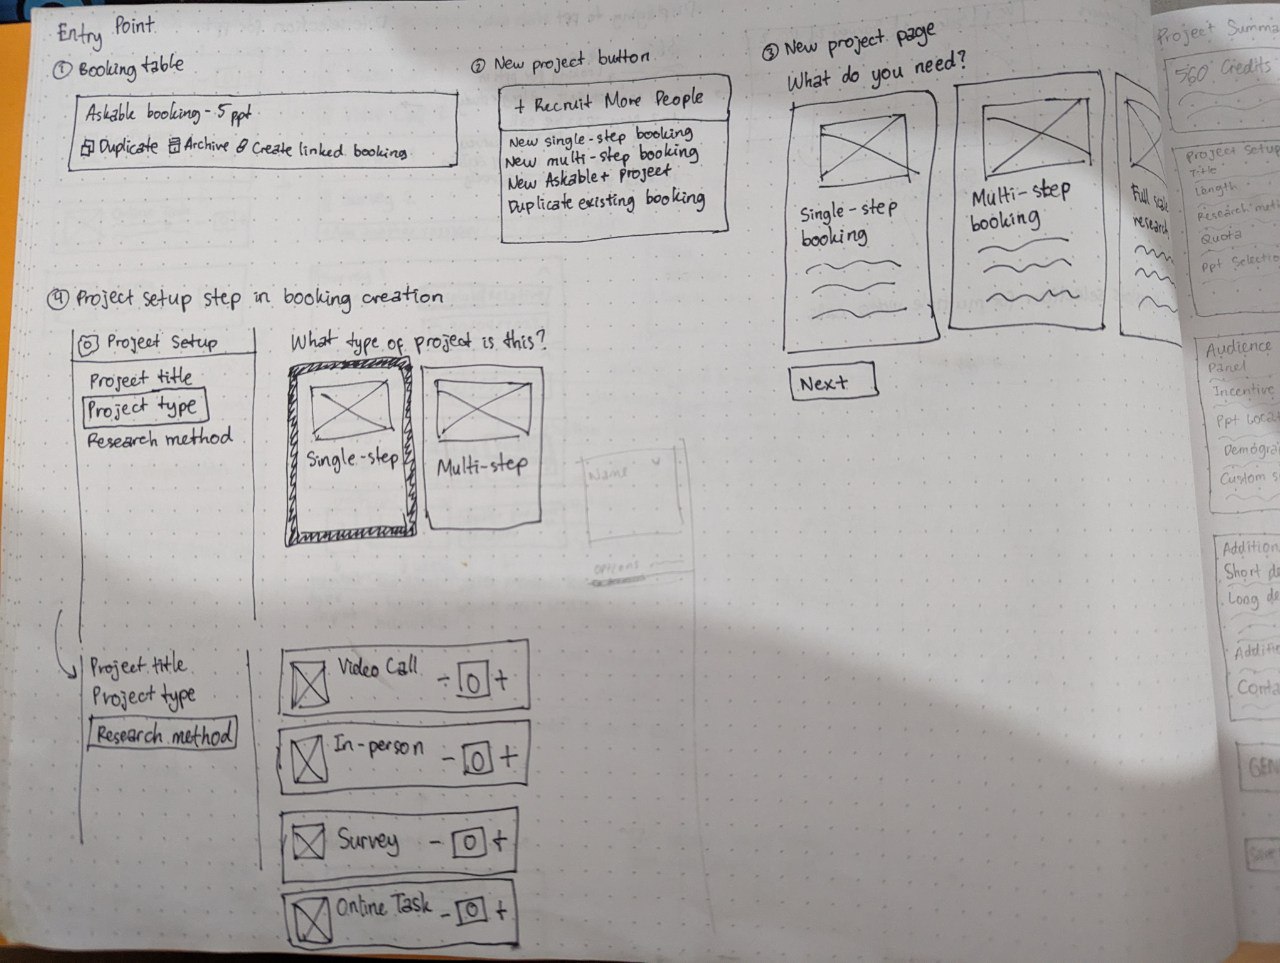 Entry Point
① Booking table
Askable booking - 5ppt
Duplicate Archive Create linked booking
② New project button
+ Recruit More People
New single-step booking
New multi-step booking
New Askable+ Project
Duplicate existing booking
③ New project page
What do you need?
Single-step
booking
Multi-step
booking
Full scale
research
Next
④ Project setup step in booking creation
Project Setup
Project title
Project type
Research method
What type of project is this?
Single-step
Multi-step
Name
options
Project title
Project type
Research method
Video Call - 0 +
In-person - 0 +
Survey - 0 +
Online Task - 0 +
Project Summa
560 Credits
Project Setup
Title
Length
Research met
Quota
Ppt Selectio
Audience
Panel
Incentive
Ppt Loca
Demogra
Custom s
Addition
Short de
Long de
Additi
Conta
GEN